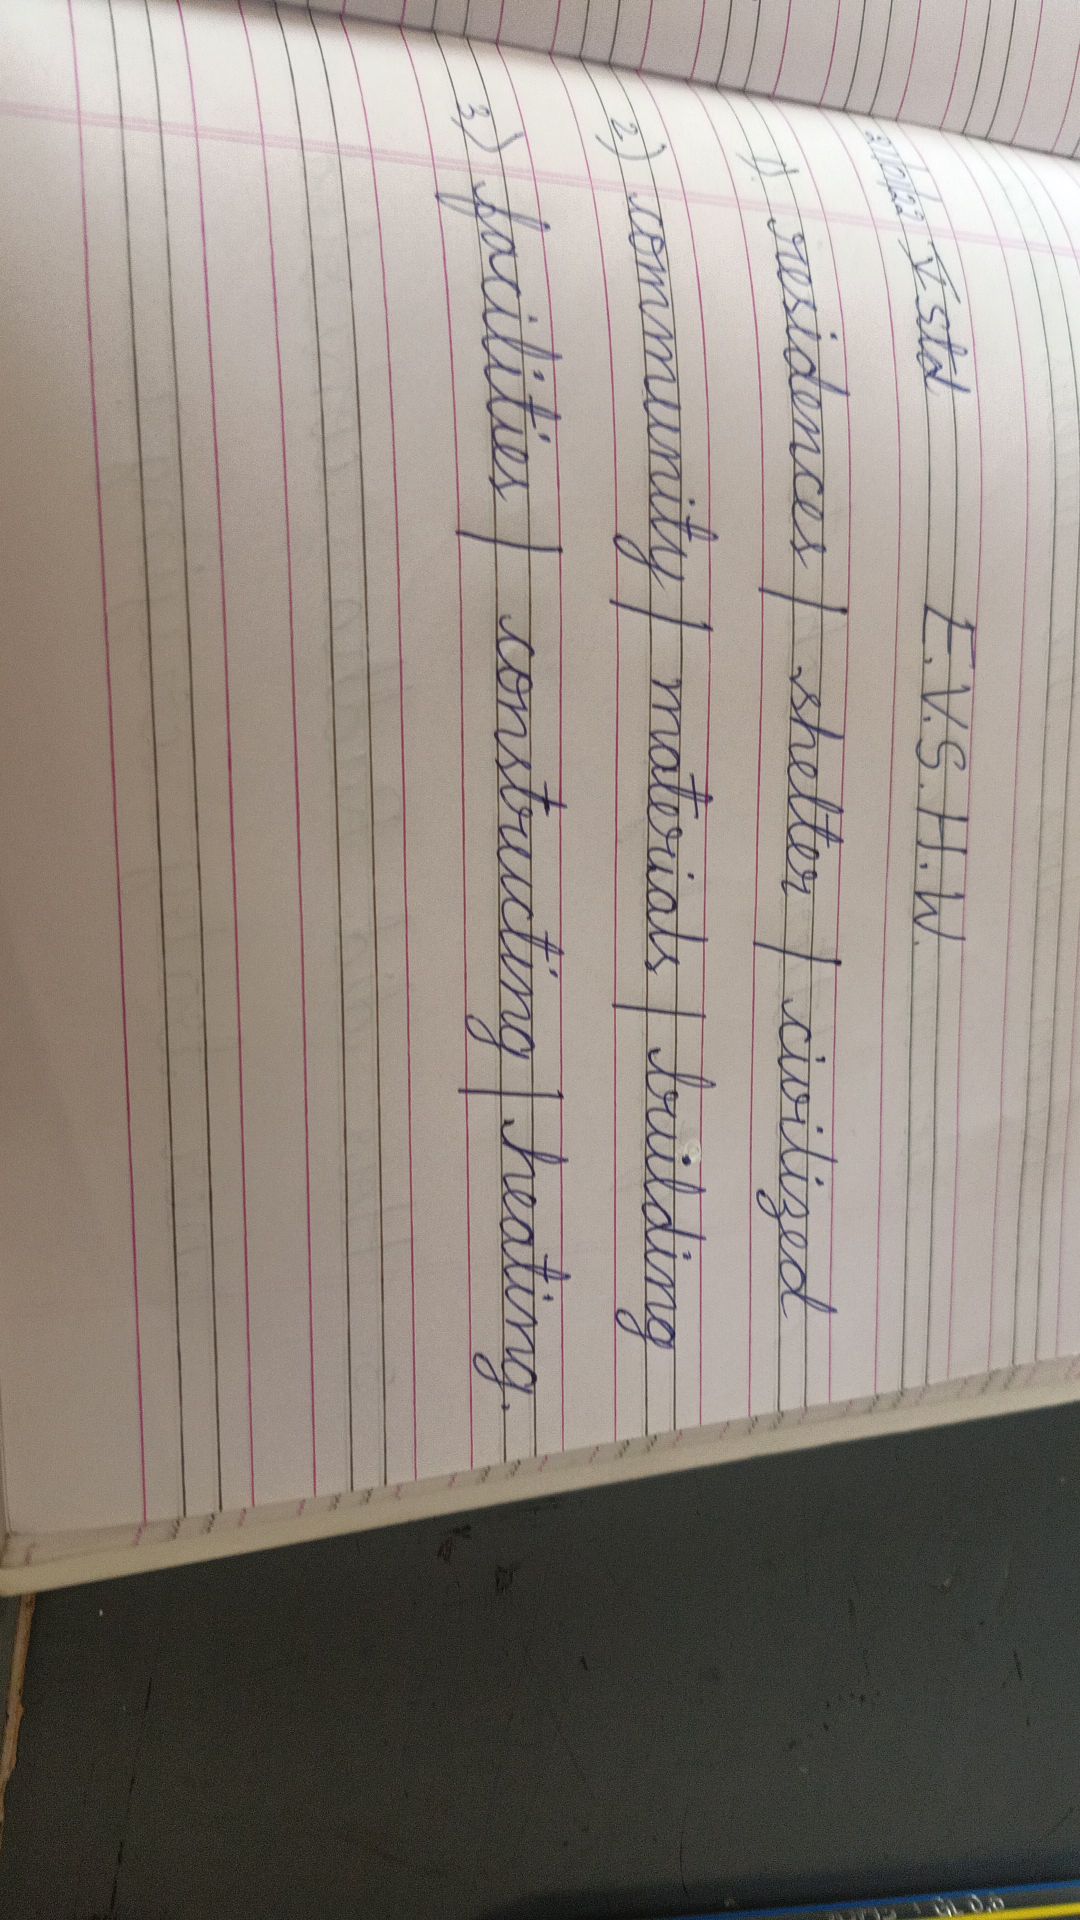 V Std E.V.S. H.W.
1) residences | shelter | civilized
2) community | materials | building
3) facilities | constructing | heating.